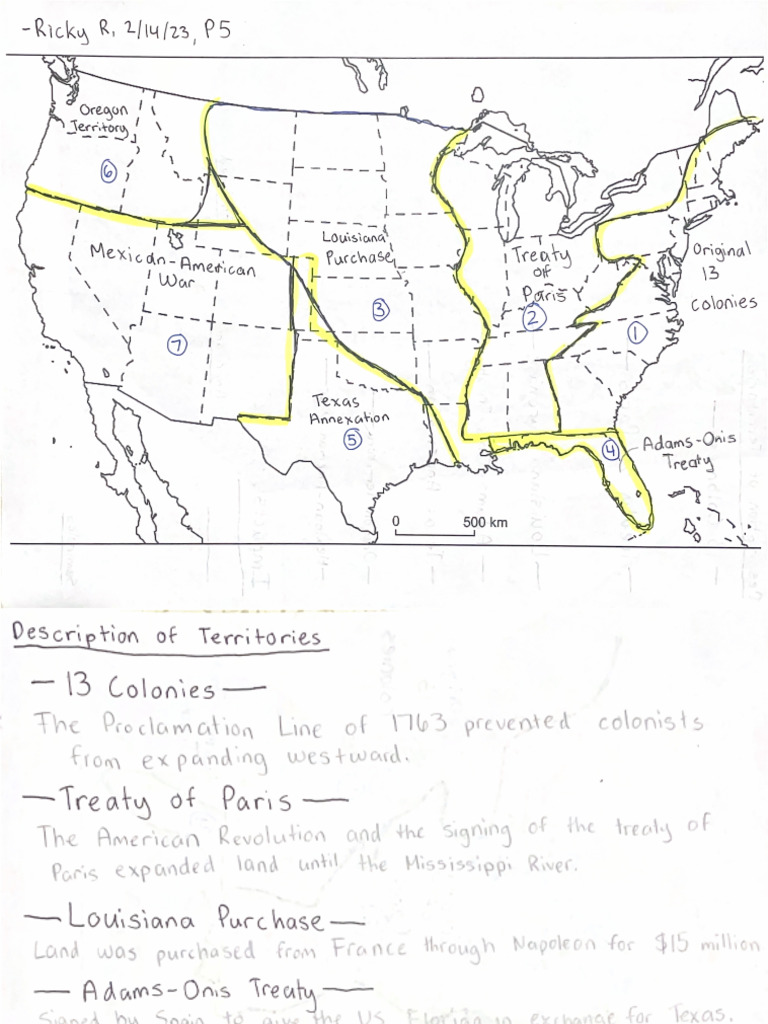 -Ricky R, 2/14/23, P5
Oregon
Territory
6
Mexican-American
War
7
Louisiana
Purchase
3
Treaty
of
Paris
2
Original
13
colonies
1
Texas
Annexation
5
4
Adams-Onis
Treaty
0 500 km
Description of Territories
— 13 Colonies —
The Proclamation Line of 1763 prevented colonists
from expanding westward.
— Treaty of Paris —
The American Revolution and the signing of the treaty of
Paris expanded land until the Mississippi River.
— Louisiana Purchase —
Land was purchased from France through Napoleon for $15 million
— Adams-Onis Treaty —
Signed by Spain to give the US Florida in exchange for Texas.